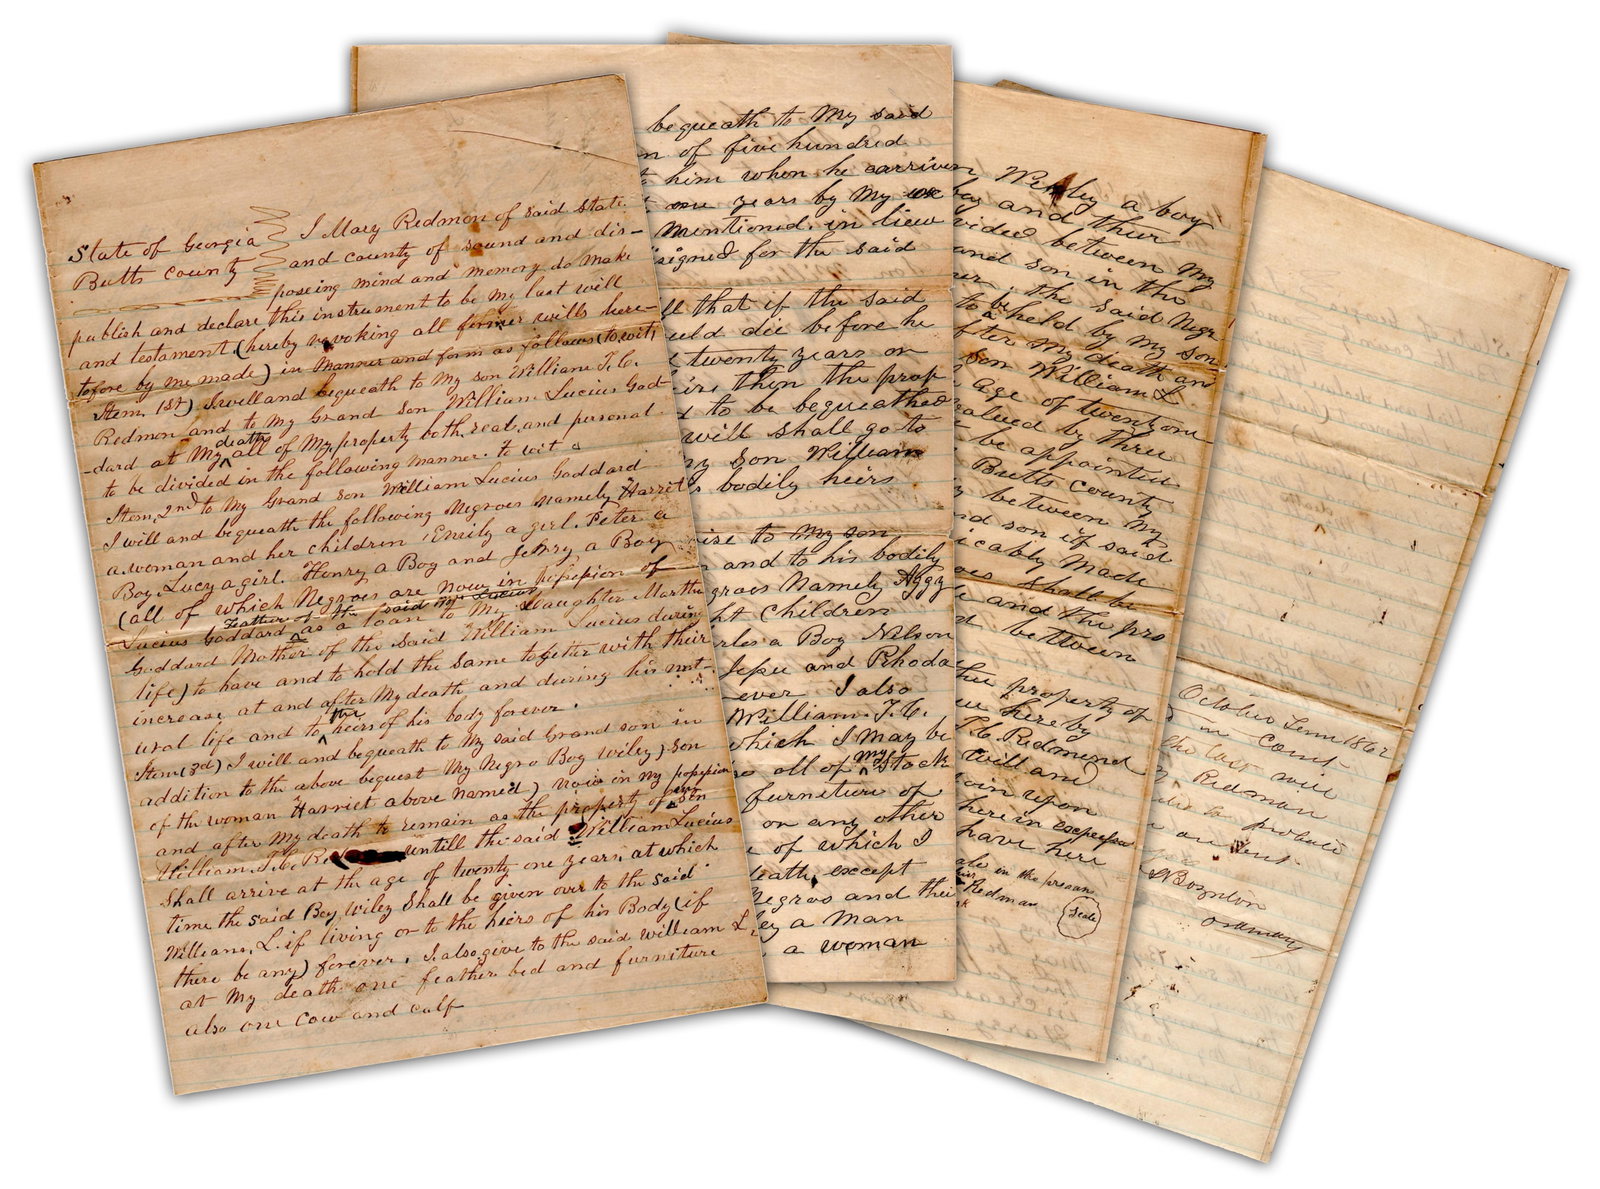 State of Georgia
Butts County
I Mary Redmon of said State
and county of sound and dis-
poseing mind and memory do make
publish and declare this instrument to be my last will
and testament (hereby revoking all former wills here-
tofore by me made) in manner and form as follows (to wit)
Item 1st) I will and bequeath to My son William T. C.
Redmon and to My Grand Son William Lucius God-
dard at My death all of My property both real and personal
to be divided in the following manner. to wit
Item, 2nd to My Grand Son William Lucius Goddard
I will and bequeath the following Negroes namely Harriet
a woman and her children Emily a girl. Peter a
Boy. Lucy a girl. Henry a Boy and Jehry a Boy
(all of which Negroes are Now in possession of
Lucius Goddard Father of the said Wm Lucius as a loan to My Daughter Martha
Goddard Mother of the said William Lucius during
life) to have and to hold the same together with their
increase at and after My death and during his nat-
ural life and to the heirs of his body forever.
Item (3d) I will and bequeath to My said Grand son in
addition to the above bequest My Negro Boy Wiley) Son
of the woman Harriet above Named) now in my possession
and after My death to remain as the property of
William T. C. untill the said William Lucius
Shall arrive at the age of twenty one years, at which
time the said Boy Wiley Shall be given over to the said
William. L. if living or to the heirs of his Body (if
there be any) forever. I also give to the said William L.
at My death one feather bed and furniture
also one Cow and calf
bequeath to My said
of five hundred
him when he arrives
one years by My
Mentioned. in lieu
signed for the said
that if the said
die before he
twenty years or
then the prop
to be bequeathed
will shall go to
son William
bodily heirs
to My son
and to his bodily
Namely Aggy
Children
a Boy Nilson
Jesse and Rhoda
ever I also
William. T. C.
which I may be
all of my Stock
furniture of
on any other
of which I
death, except
Negros and their
a Man
a woman
Wesley a boy
boy and their
between My
and son in the
the said Negro
to be held by my son
after my death and
son William L
age of twenty one
valued by three
be appointed
Butts County
between My
son if said
Made
shall be
and the pro
between
the property of
hereby
T. C. Redmond
Will and
upon
herein
have here
in the
Redman
Seale
October Term 1862
in Court
the last will
Redman
to probate
Boynton
ordinary